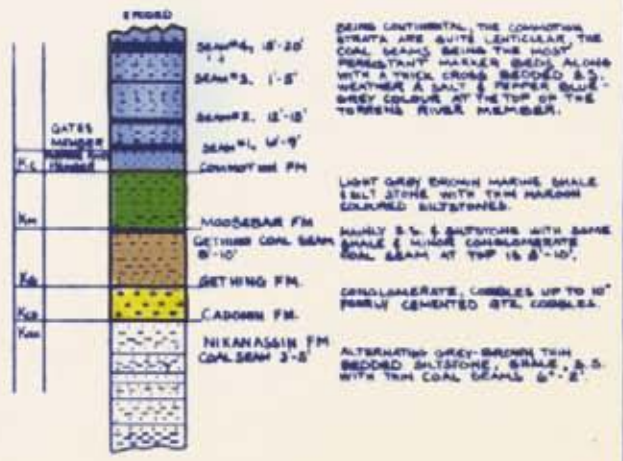 ERODED
SEAM #4, 15'-20'
SEAM #3, 1'-5'
SEAM #2, 12'-15'
SEAM #1, 6'-9'
GATES
MEMBER
TORRENS RIVER
MEMBER
KC
COMMOTION FM
KM
MOOSEBAR FM
GETHING COAL SEAM
8'-10'
KG
GETHING FM.
KCD
CADOMIN FM.
NIKANASSIN FM
COAL SEAM 3'-5'
BEING CONTINENTAL, THE COMMOTION
STRATA ARE QUITE LENTICULAR, THE
COAL SEAMS BEING THE MOST
PERSISTANT MARKER BEDS ALONG
WITH A THICK CROSS BEDDED S.S.
WEATHER A SALT & PEPPER BLUE-
GREY COLOUR AT THE TOP OF THE
TORRENS RIVER MEMBER.
LIGHT GREY BROWN MARINE SHALE
& SILT STONE WITH THIN MAROON
COLOURED SILTSTONES.
MAINLY S.S. & SILTSTONE WITH SOME
SHALE & MINOR CONGLOMERATE
COAL SEAM AT TOP IS 8'-10'.
CONGLOMERATE, COBBLES UP TO 10"
POORLY CEMENTED QTZ. COBBLES.
ALTERNATING GREY-BROWN THIN
BEDDED SILTSTONE, SHALE, S.S.
WITH THIN COAL SEAMS 6"-2'